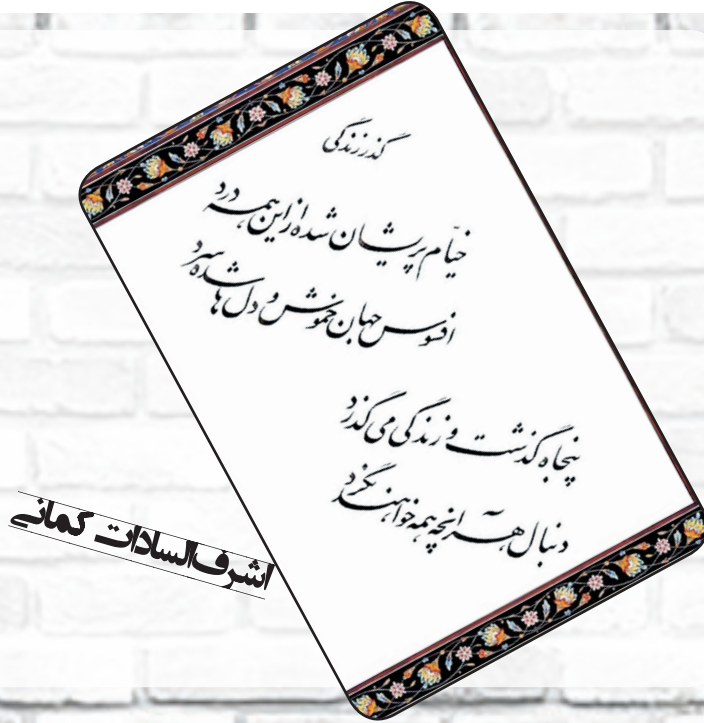 گذر زندگی
خیّام پریشان شده از این همه درد
افسوس جهان خموش و دل‌ها شده سرد
پنجاه گذشت و زندگی می گذرد
دنبال هر آنچه همه خواهند نگرد
اشرف‌السادات کمانی